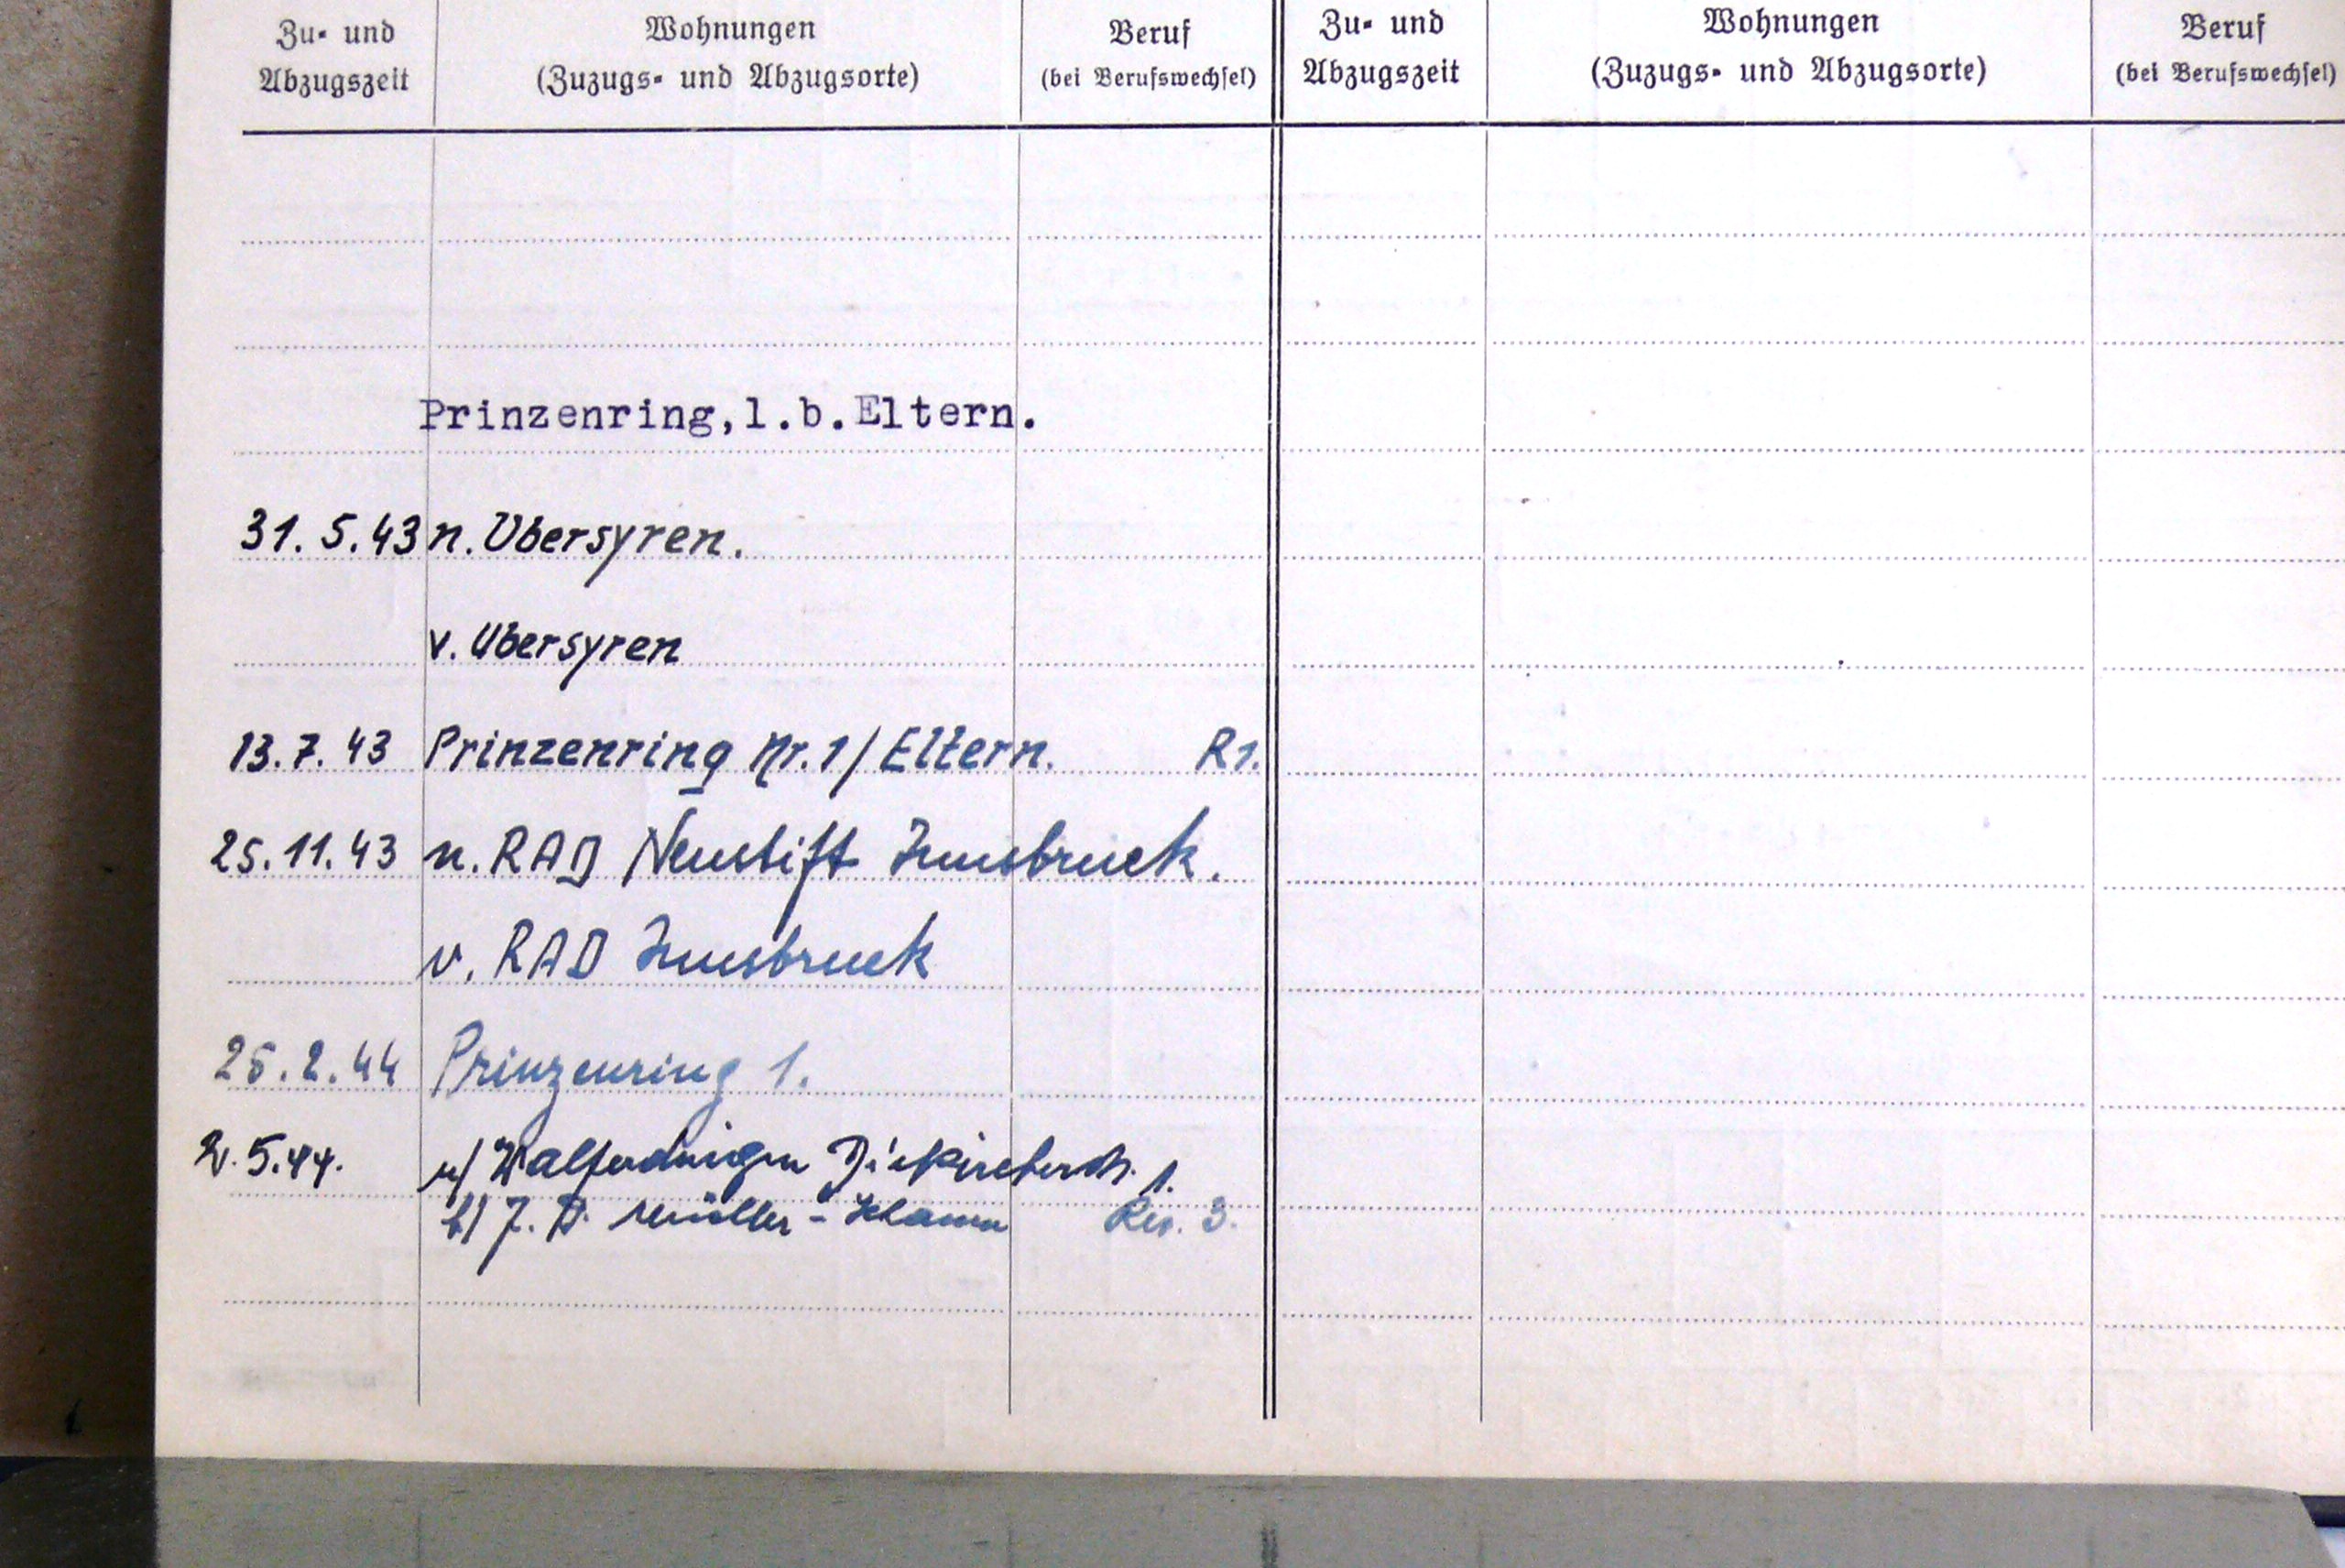 Zu- und Abzugszeit
Wohnungen (Zuzugs- und Abzugsorte)
Beruf (bei Berufswechsel)
Zu- und Abzugszeit
Wohnungen (Zuzugs- und Abzugsorte)
Beruf (bei Berufswechsel)
Prinzenring, l.b.Eltern.
31. 5. 43 n. Ubersyren.
v. Ubersyren
13. 7. 43 Prinzenring Nr. 1 / Eltern. R1.
25. 11. 43 n. RAD Neustift Innsbruck.
v. RAD Innsbruck
25. 2. 44 Prinzenring 1.
2. 5. 44. n/ Walferdingen Diekircherstr. 1.
b/ J. P. Müller - Schamm Rev. 3.